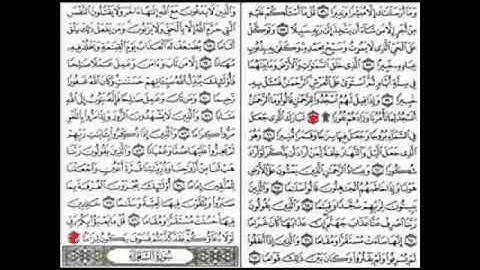 وَمَا أَرْسَلْنَاكَ إِلَّا مُبَشِّرًا وَنَذِيرًا ۝ قُلْ مَا أَسْـَٔلُكُمْ عَلَيْهِ
مِنْ أَجْرٍ إِلَّا مَن شَاءَ أَن يَتَّخِذَ إِلَىٰ رَبِّهِ سَبِيلًا ۝ وَتَوَكَّلْ
عَلَى الْحَيِّ الَّذِي لَا يَمُوتُ وَسَبِّحْ بِحَمْدِهِ وَكَفَىٰ بِهِ بِذُنُوبِ
عِبَادِهِ خَبِيرًا ۝ الَّذِي خَلَقَ السَّمَٰوَٰتِ وَالْأَرْضَ وَمَا بَيْنَهُمَا
فِي سِتَّةِ أَيَّامٍ ثُمَّ اسْتَوَىٰ عَلَى الْعَرْشِ الرَّحْمَٰنُ فَسْـَٔلْ بِهِ
خَبِيرًا ۝ وَإِذَا قِيلَ لَهُمُ اسْجُدُوا لِلرَّحْمَٰنِ قَالُوا وَمَا الرَّحْمَٰنُ
أَنَسْجُدُ لِمَا تَأْمُرُنَا وَزَادَهُمْ نُفُورًا ۩ ۝ تَبَارَكَ الَّذِي جَعَلَ
فِي السَّمَاءِ بُرُوجًا وَجَعَلَ فِيهَا سِرَاجًا وَقَمَرًا مُّنِيرًا ۝ وَهُوَ
الَّذِي جَعَلَ اللَّيْلَ وَالنَّهَارَ خِلْفَةً لِّمَنْ أَرَادَ أَن يَذَّكَّرَ أَوْ أَرَادَ
شُكُورًا ۝ وَعِبَادُ الرَّحْمَٰنِ الَّذِينَ يَمْشُونَ عَلَى الْأَرْضِ
هَوْنًا وَإِذَا خَاطَبَهُمُ الْجَاهِلُونَ قَالُوا سَلَامًا ۝ وَالَّذِينَ
يَبِيتُونَ لِرَبِّهِمْ سُجَّدًا وَقِيَامًا ۝ وَالَّذِينَ يَقُولُونَ
رَبَّنَا اصْرِفْ عَنَّا عَذَابَ جَهَنَّمَ إِنَّ عَذَابَهَا كَانَ غَرَامًا
۝ إِنَّهَا سَاءَتْ مُسْتَقَرًّا وَمُقَامًا ۝ وَالَّذِينَ إِذَا أَنفَقُوا
لَمْ يُسْرِفُوا وَلَمْ يَقْتُرُوا وَكَانَ بَيْنَ ذَٰلِكَ قَوَامًا ۝
وَالَّذِينَ لَا يَدْعُونَ مَعَ اللَّهِ إِلَٰهًا ءَاخَرَ وَلَا يَقْتُلُونَ النَّفْسَ
الَّتِي حَرَّمَ اللَّهُ إِلَّا بِالْحَقِّ وَلَا يَزْنُونَ وَمَن يَفْعَلْ ذَٰلِكَ يَلْقَ
أَثَامًا ۝ يُضَاعَفْ لَهُ الْعَذَابُ يَوْمَ الْقِيَامَةِ وَيَخْلُدْ فِيهِ
مُهَانًا ۝ إِلَّا مَن تَابَ وَءَامَنَ وَعَمِلَ عَمَلًا صَالِحًا
فَأُولَٰئِكَ يُبَدِّلُ اللَّهُ سَيِّـَٔاتِهِمْ حَسَنَاتٍ وَكَانَ اللَّهُ غَفُورًا
رَّحِيمًا ۝ وَمَن تَابَ وَعَمِلَ صَالِحًا فَإِنَّهُ يَتُوبُ إِلَى اللَّهِ
مَتَابًا ۝ وَالَّذِينَ لَا يَشْهَدُونَ الزُّورَ وَإِذَا مَرُّوا بِاللَّغْوِ
مَرُّوا كِرَامًا ۝ وَالَّذِينَ إِذَا ذُكِّرُوا بِـَٔايَاتِ رَبِّهِمْ
لَمْ يَخِرُّوا عَلَيْهَا صُمًّا وَعُمْيَانًا ۝ وَالَّذِينَ يَقُولُونَ رَبَّنَا
هَبْ لَنَا مِنْ أَزْوَاجِنَا وَذُرِّيَّاتِنَا قُرَّةَ أَعْيُنٍ وَاجْعَلْنَا
لِلْمُتَّقِينَ إِمَامًا ۝ أُولَٰئِكَ يُجْزَوْنَ الْغُرْفَةَ بِمَا
صَبَرُوا وَيُلَقَّوْنَ فِيهَا تَحِيَّةً وَسَلَامًا ۝ خَالِدِينَ
فِيهَا حَسُنَتْ مُسْتَقَرًّا وَمُقَامًا ۝ قُلْ مَا يَعْبَؤُا بِكُمْ رَبِّي
لَوْلَا دُعَاؤُكُمْ فَقَدْ كَذَّبْتُمْ فَسَوْفَ يَكُونُ لِزَامًا ۝
سُورَةُ الشُّعَرَاءِ